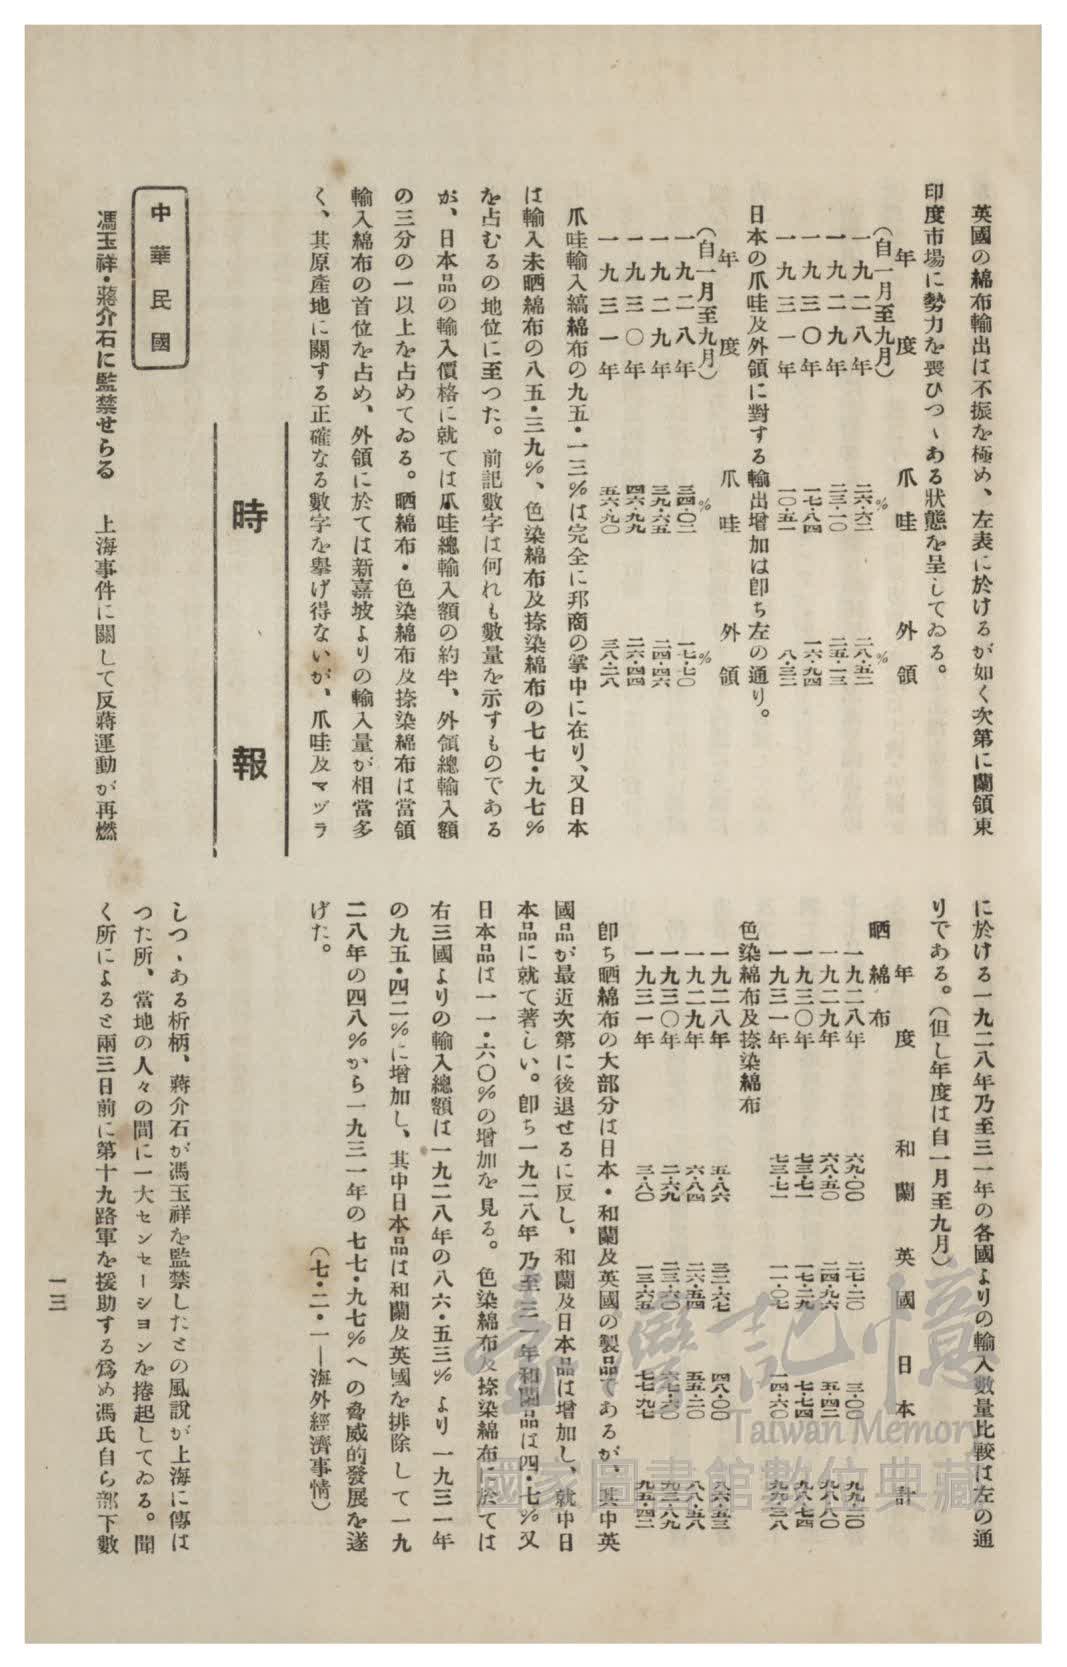 英國の綿布輸出は不振を極め、左表に於けるが如く次第に蘭領東
印度市場に勢力を喪ひつゝある狀態を呈してゐる。
年度 爪哇 外領
(自一月至九月) % %
一九二八年 二六・六二 二八・五二
一九二九年 二三・一〇 二五・一三
一九三〇年 一七・八四 一六・九四
一九三一年 一〇・五一 八・三二
日本の爪哇及外領に對する輸出增加は卽ち左の通り。
年度 爪哇 外領
(自一月至九月) % %
一九二八年 三四・〇二 一七・七〇
一九二九年 三九・六五 二四・四六
一九三〇年 四六・九九 二六・四四
一九三一年 五六・九〇 三八・二八
爪哇輸入縞綿布の九五・一三%は完全に邦商の掌中に在り、又日本
は輸入未晒綿布の八五・三九%、色染綿布及捺染綿布の七七・九七%
を占むるの地位に至つた。前記數字は何れも數量を示すものである
が、日本品の輸入價格に就ては爪哇總輸入額の約半、外領總輸入額
の三分の一以上を占めてゐる。晒綿布・色染綿布及捺染綿布は當領
輸入綿布の首位を占め、外領に於ては新嘉坡よりの輸入量が相當多
く、其原產地に關する正確なる數字を擧げ得ないが、爪哇及マヅラ
に於ける一九二八年乃至三一年の各國よりの輸入數量比較は左の通
りである。(但し年度は自一月至九月)
年度 和蘭 英國 日本 計
晒綿布
一九二八年 六九・〇〇 二七・二〇 三・〇〇 九九・二〇
一九二九年 六八・五〇 二四・九六 五・四二 九八・八〇
一九三〇年 七三・七一 一七・二九 七・七四 九八・七四
一九三一年 七三・七一 一一・〇七 一四・六〇 九九・三八
色染綿布及捺染綿布
一九二八年 五・八六 三二・六七 四八・〇〇 八六・五三
一九二九年 六・八四 二六・五四 五五・二〇 八八・五八
一九三〇年 二・六九 二三・六〇 六七・六〇 九三・八九
一九三一年 三・八〇 一三・六五 七七・九七 九五・四二
卽ち晒綿布の大部分は日本・和蘭及英國の製品であるが、其中英
國品が最近次第に後退せるに反し、和蘭及日本品は增加し、就中日
本品に就て著しい。卽ち一九二八年乃至三一年和蘭品は四・七%又
日本品は一一・六〇%の增加を見る。色染綿布及捺染綿布に於ては
右三國よりの輸入總額は一九二八年の八六・五三%より一九三一年
の九五・四二%に增加し、其中日本品は和蘭及英國を排除して一九
二八年の四八%から一九三一年の七七・九七%への脅威的發展を遂
げた。
(七・二・一—海外經濟事情)
時報
中華民國
馮玉祥・蔣介石に監禁せらる 上海事件に關して反蔣運動が再燃
しつゝある折柄、蔣介石が馮玉祥を監禁したとの風說が上海に傳は
つた所、當地の人々の間に一大センセーションを捲起してゐる。聞
く所によると兩三日前に第十九路軍を援助する爲め馮氏自ら部下數
一三
臺灣記憶
Taiwan Memory
國家圖書館數位典藏